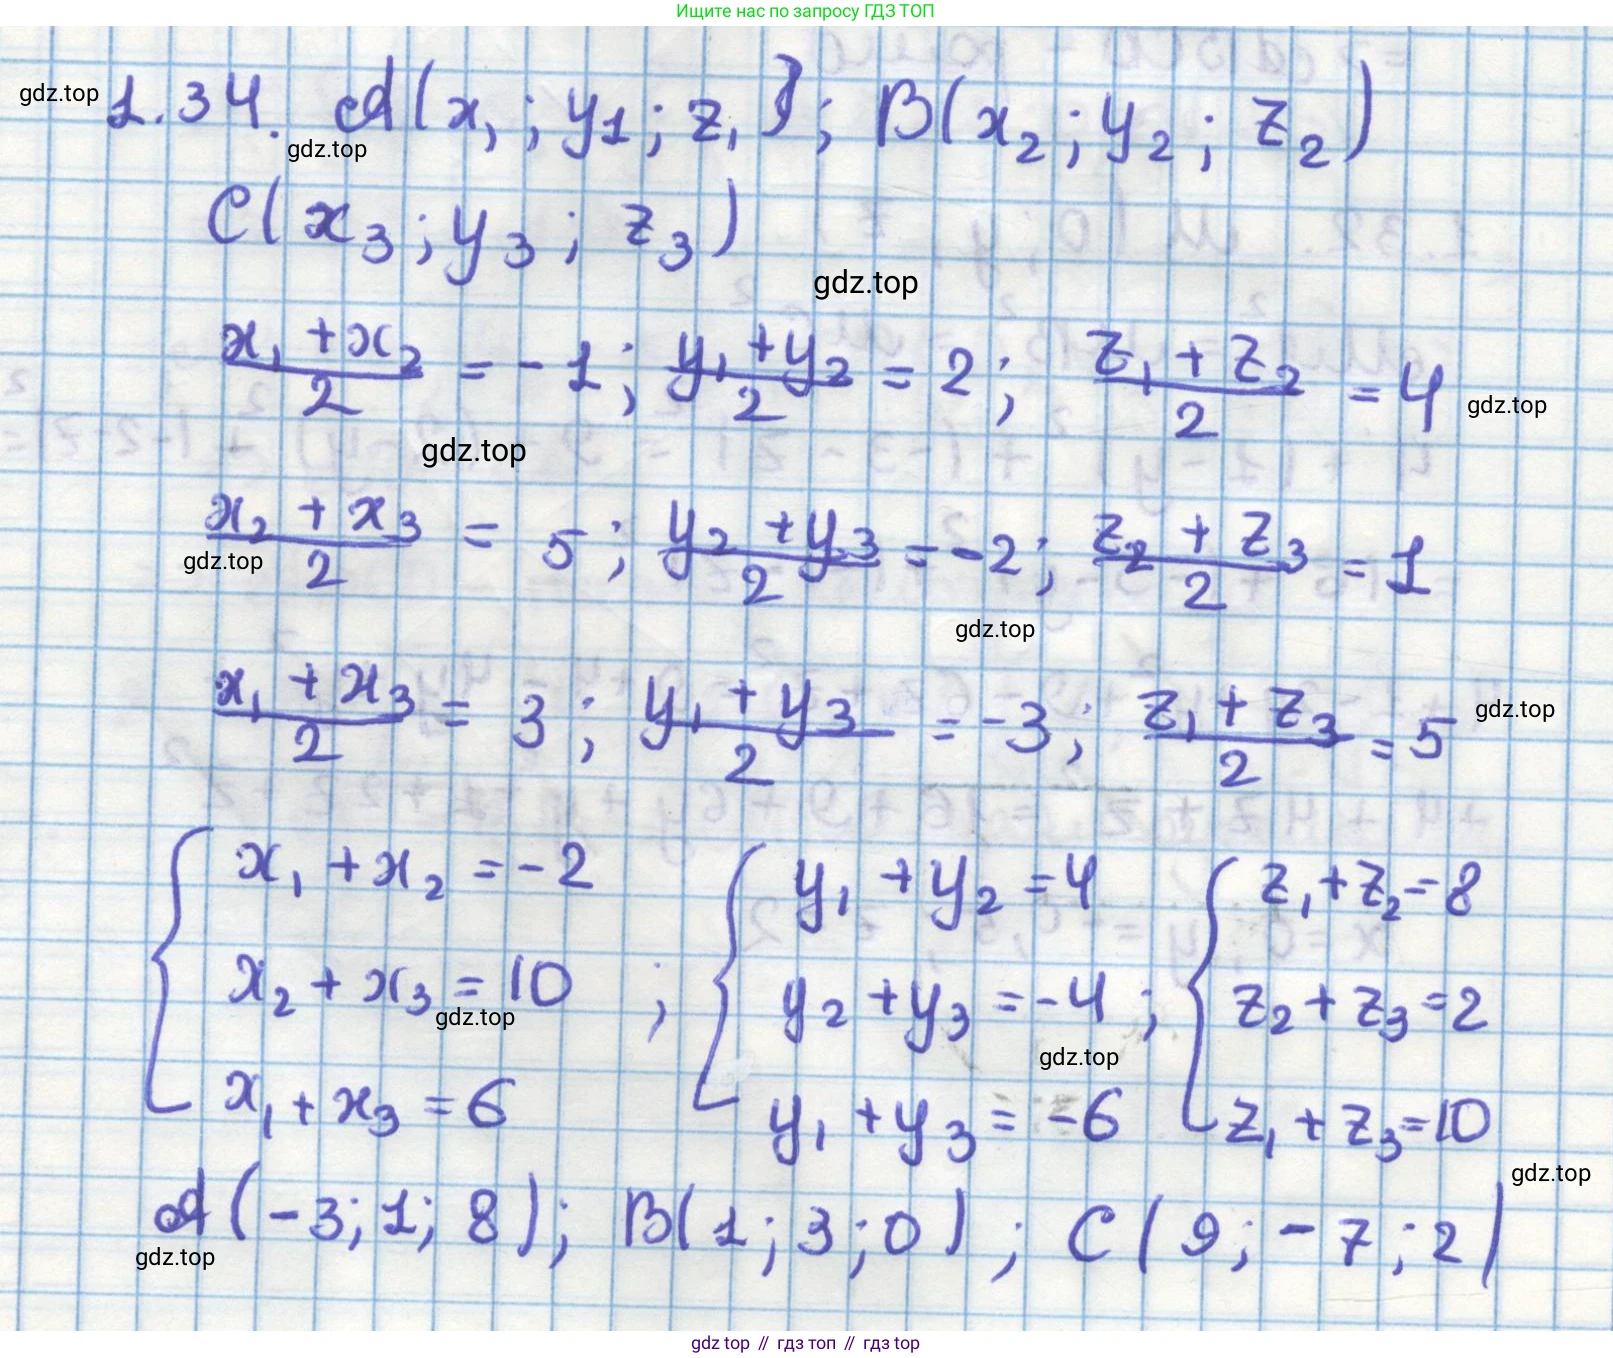 Ищите нас по запросу ГДЗ ТОП
gdz.top 1.34. A(x₁; y₁; z₁); B(x₂; y₂; z₂)
gdz.top
C(x₃; y₃; z₃)
gdz.top
(x₁ + x₂)/2 = -1; (y₁ + y₂)/2 = 2; (z₁ + z₂)/2 = 4 gdz.top
gdz.top
(x₂ + x₃)/2 = 5; (y₂ + y₃)/2 = -2; (z₂ + z₃)/2 = 1
gdz.top
gdz.top
(x₁ + x₃)/2 = 3; (y₁ + y₃)/2 = -3; (z₁ + z₃)/2 = 5 gdz.top
{ x₁ + x₂ = -2 { y₁ + y₂ = 4 { z₁ + z₂ = 8
x₂ + x₃ = 10 ; y₂ + y₃ = -4 ; z₂ + z₃ = 2
gdz.top gdz.top
x₁ + x₃ = 6 y₁ + y₃ = -6 z₁ + z₃ = 10
gdz.top
A(-3; 1; 8); B(1; 3; 0); C(9; -7; 2)
gdz.top
gdz top // гдз топ // gdz top